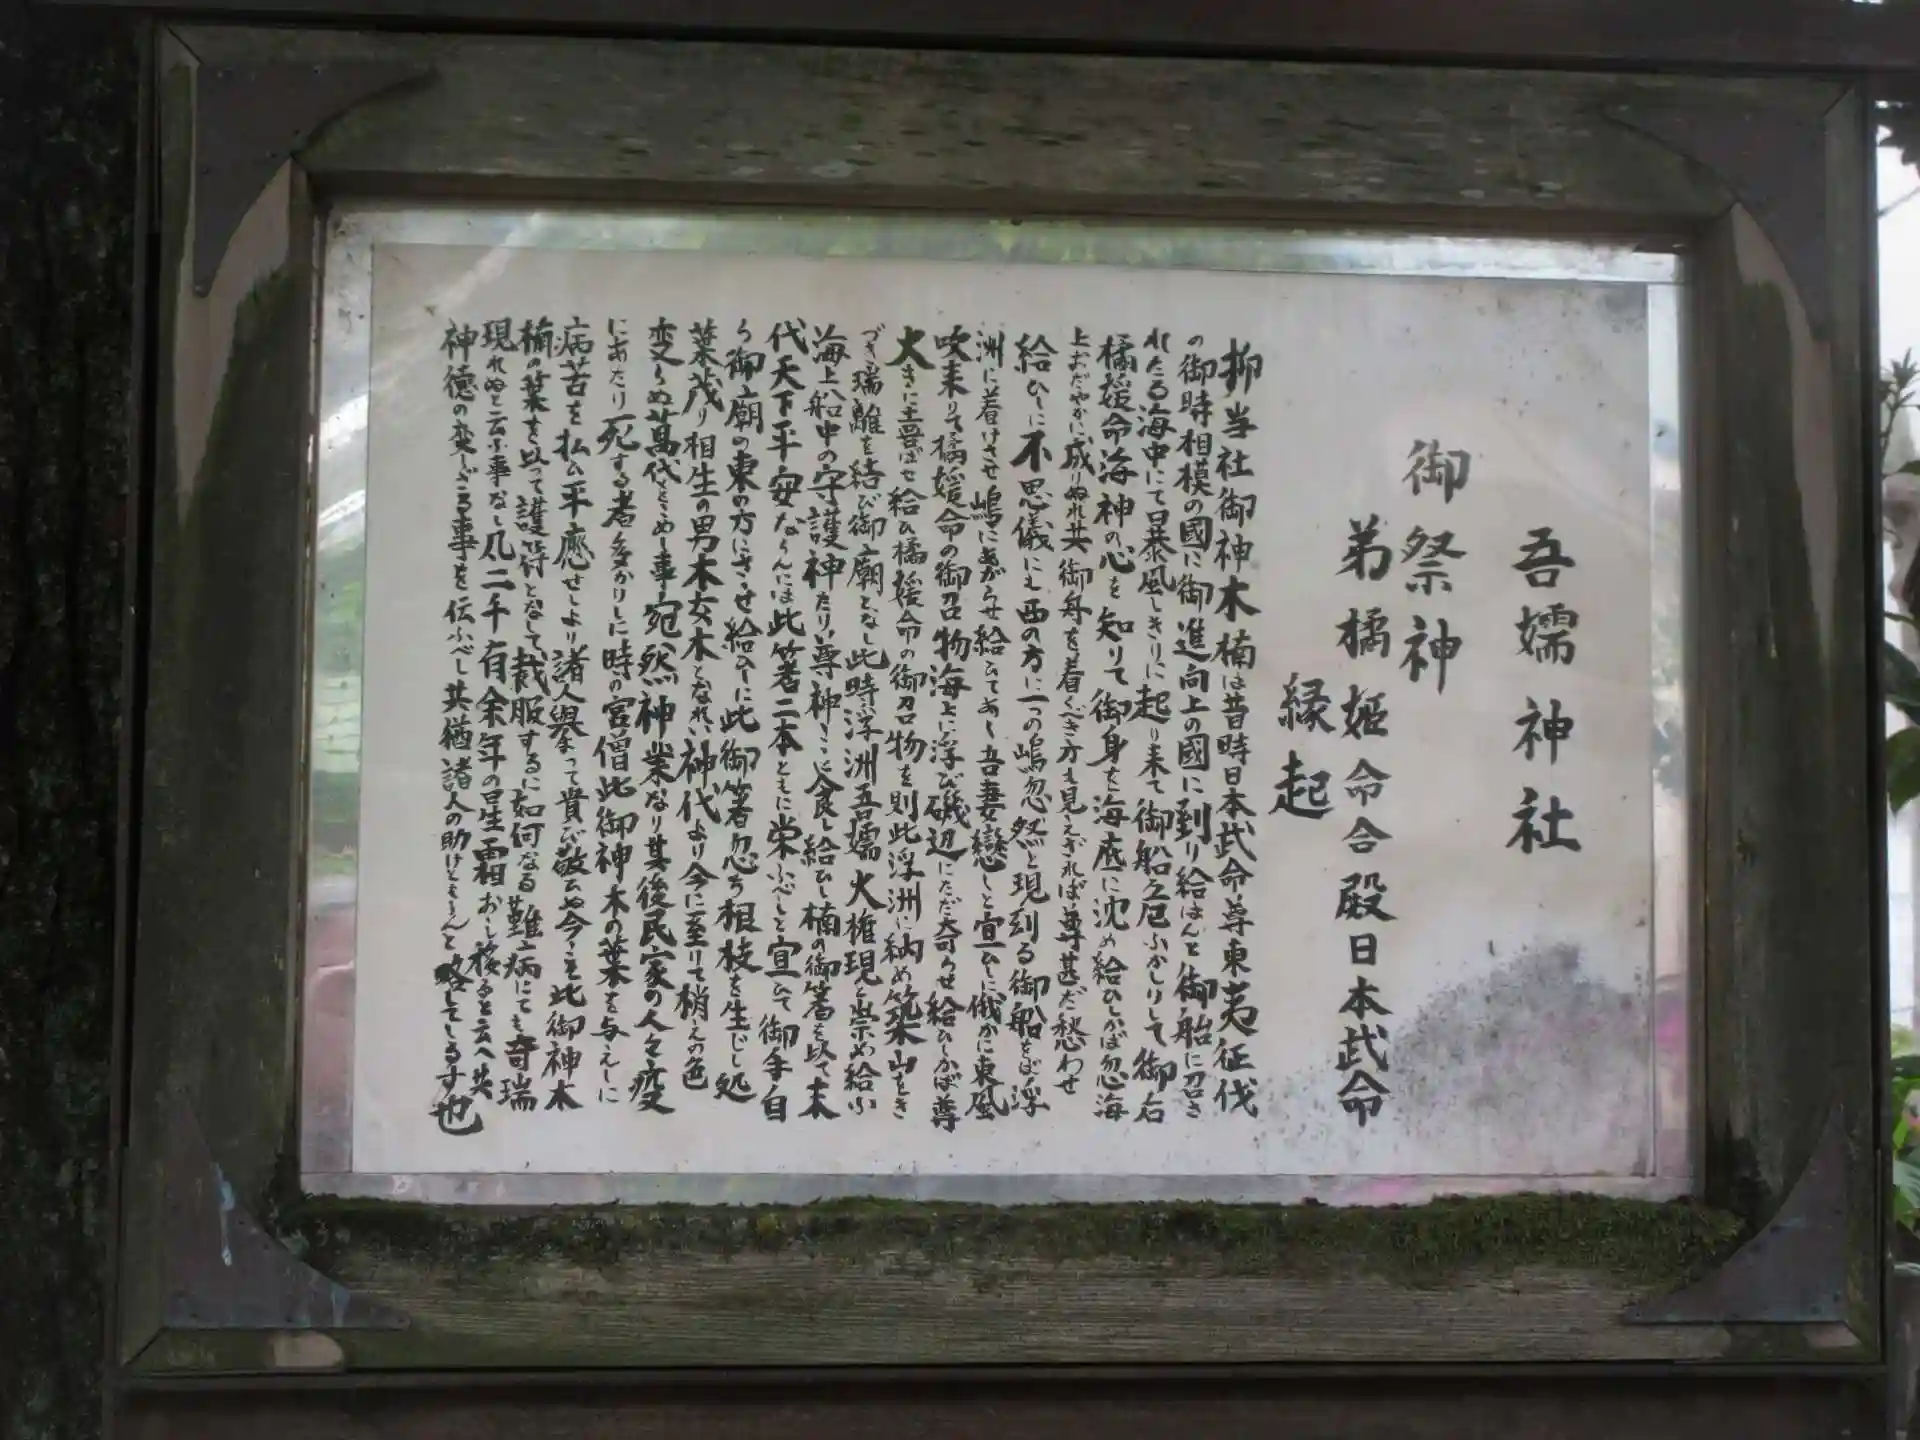 吾嬬神社
御祭神
弟橘姫命合殿日本武命
縁起
抑当社御神木楠は昔時日本武命尊東夷征伐
の御時相模の國に御進向上の國に到り給はんと御船に召さ
れたる海中にて暴風しきりに起り来て御船之危ふかしりして御后
橘媛命海神の心を知りて御身を海底に沈め給ひしかば忽海
上おだやかに成りぬれ共御舟を着くべき方も見えざれば尊甚だ愁わせ
給ひしに不思儀にも西の方に一つの嶋忽然と現到る御船をば浮
洲に着けさせ嶋にあがらせ給ひてあゝ吾妻戀しと宣ひしに俄かに東風
吹来りて橘媛命の御召物海上に浮び磯辺にただ奇らせ給ひしかば尊
大きに喜ばせ給ひ橘媛命の御召物を則此浮洲に納め築山をき
づき瑞離を結び御廟となし此時浮洲吾嬬大権現と崇め給ふ
海上船中の守護神たり尊神こゝに食し給ひし楠の御箸を以て末
代天下平安ならんには此箸二本ともに栄ふべしと宣ひて御手自
ら御廟の東の方にさゝせ給ひしに此御箸忽ち根枝を生じし処
葉茂り相生の男木女木となれり神代より今に至りて梢えの色
変らぬ萬代をこめし事宛然神業なり其後民家の人々疫
にあたり死する者多かりしに時の宮僧此御神木の葉を与えしに
病苦を払ひ平癒せしより諸人挙って貴び敬ひぬ今こそ此御神木
楠の葉を以って護符となして裁服するに如何なる難病にても奇瑞
現れぬと云ふ事なし凡二千有余年の星霜おし移ると云へ共
神徳の変らざる事を伝ふべし共猶諸人の助けともらんと略してしるす也